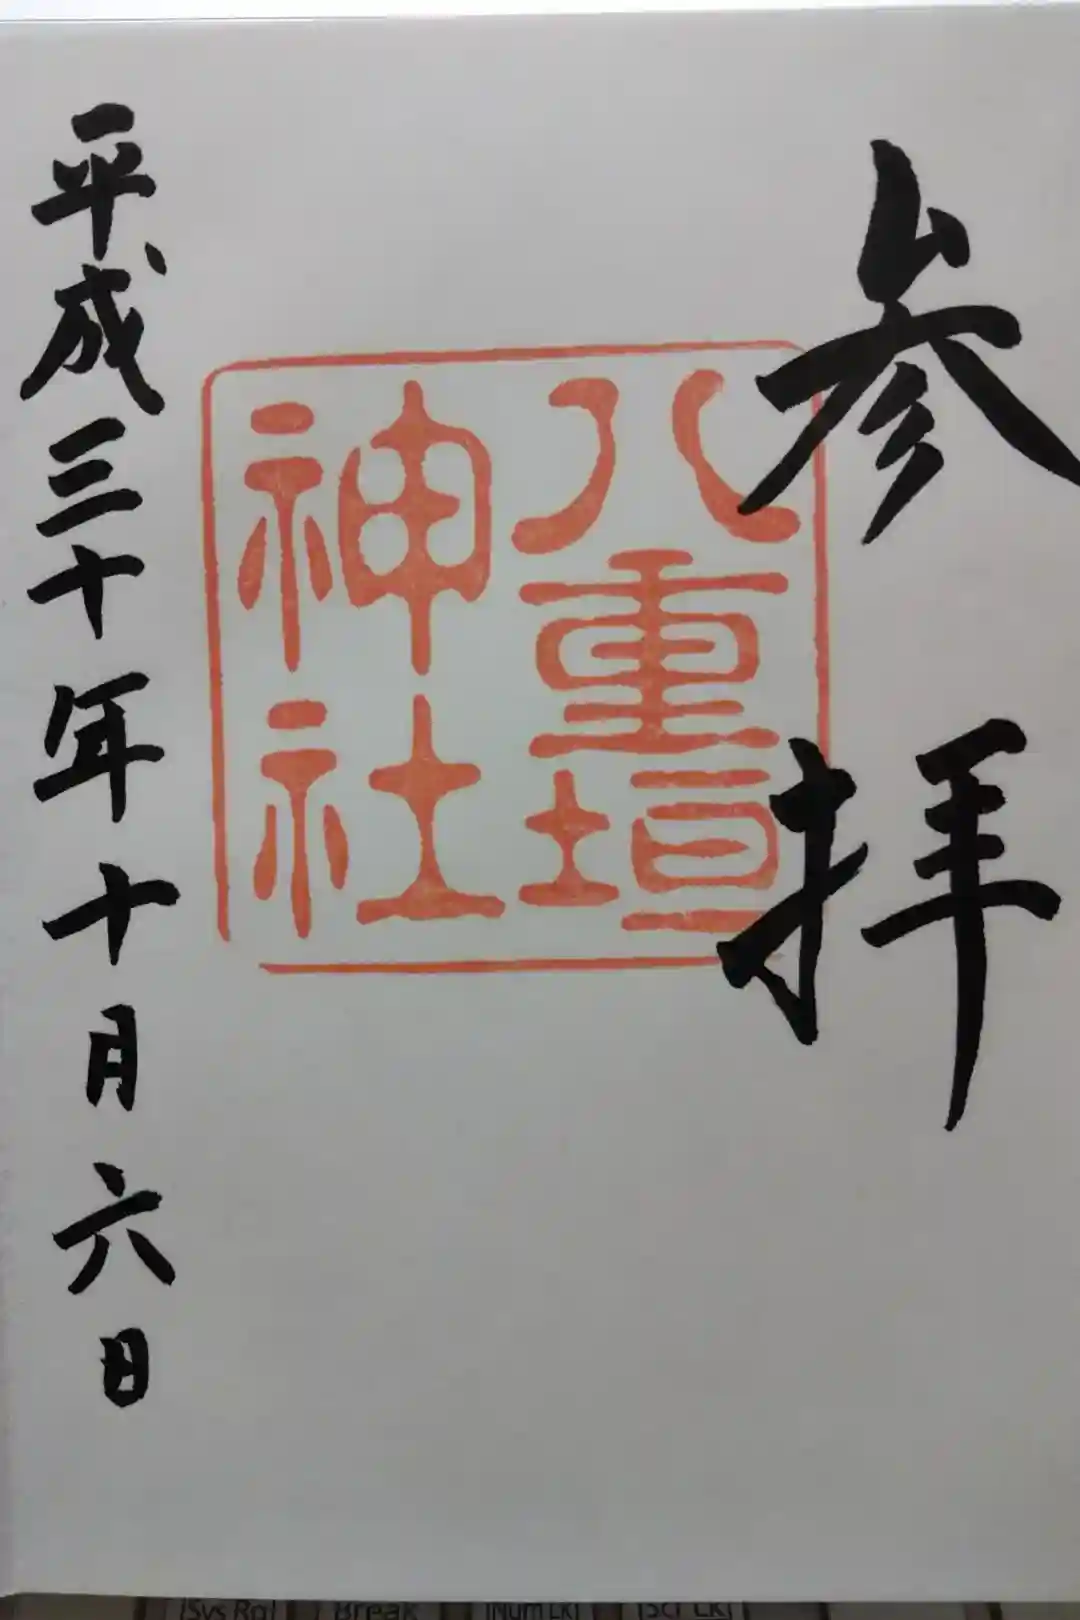 参拝
八重垣
神社
平成三十年十月六日
SysRq
Break
NumLk
Scr Lk